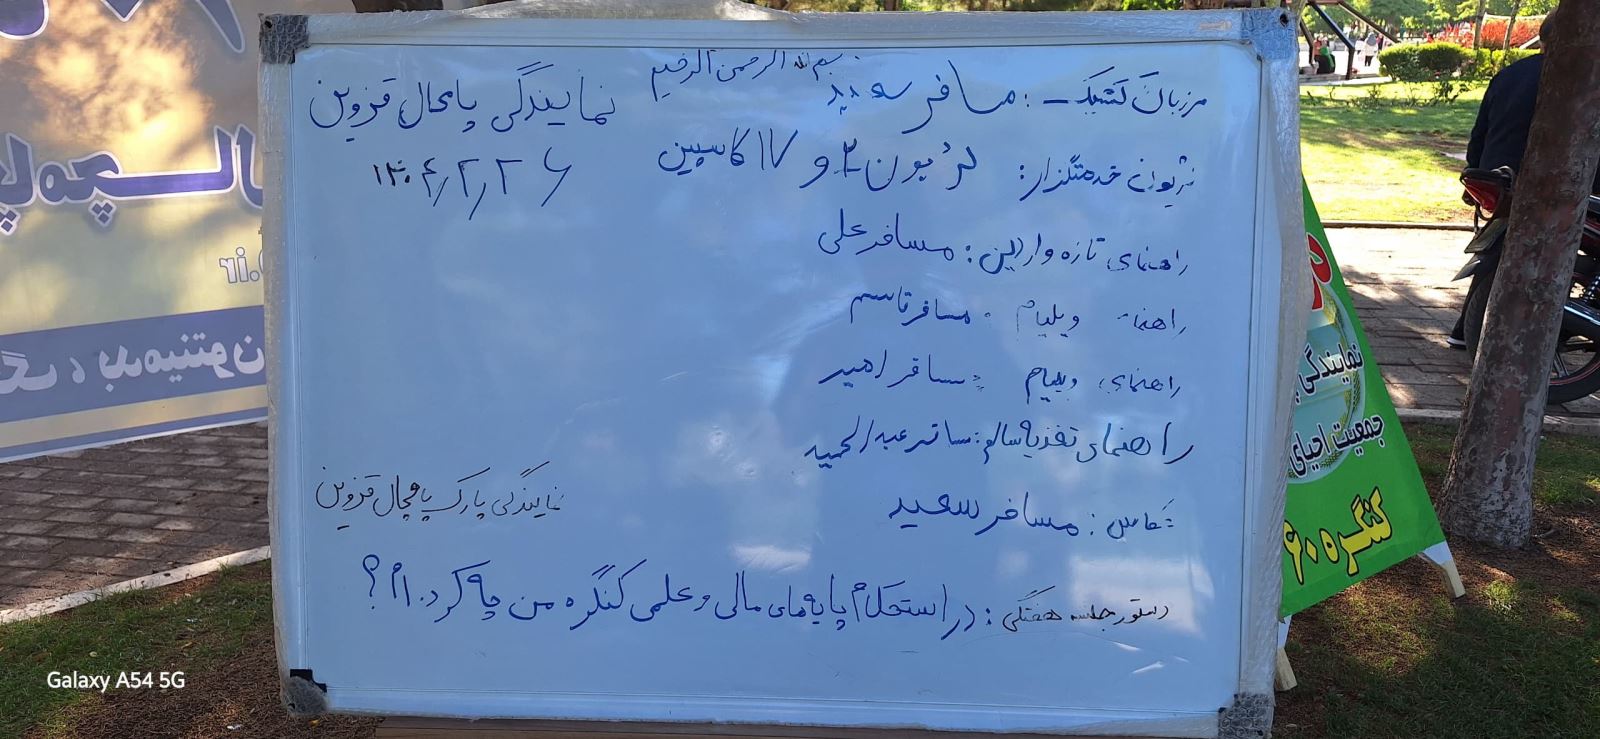 بسم الله الرحمن الرحیم
مرزبان کشیک : مسافر سعید
نمایندگی پامچال قزوین
۱۴۰۴/۲/۲۶
لژیون خدمتگزار: لژیون ۲ و ۱۷ کاسپین
راهنمای تازه واردین: مسافر علی
راهنمای ویلیام : مسافر قاسم
راهنمای ویلیام : مسافر امیر
راهنمای تغذیه سالم: مسافر عبدالحمید
عکاس: مسافر سعید
نمایندگی پارک پامچال قزوین
دستور جلسه هفتگی: در استحکام پایه های مالی و علمی کنگره من چه کرده ام؟
نمایندگی
جمعیت احیای
کنگره ۶۰
بدمینتون
Galaxy A54 5G